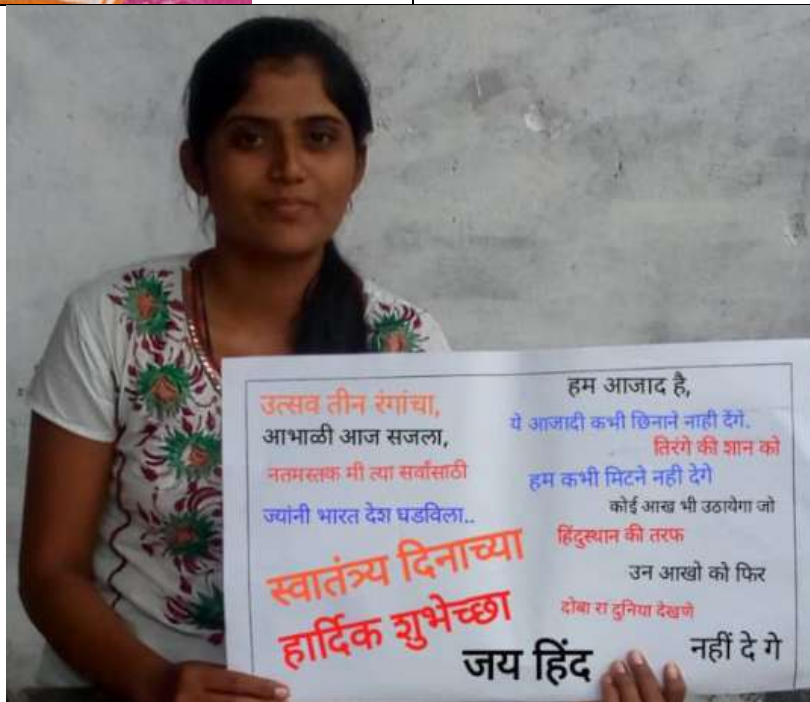 उत्सव तीन रंगांचा,
आभाळी आज सजला,
नतमस्तक मी त्या सर्वांसाठी
ज्यांनी भारत देश घडविला..
स्वातंत्र्य दिनाच्या
हार्दिक शुभेच्छा
हम आजाद है,
ये आजादी कभी छिनाने नाही देंगे.
तिरंगे की शान को
हम कभी मिटने नही देगे
कोई आख भी उठायेगा जो
हिंदुस्थान की तरफ
उन आखो को फिर
दोबा रा दुनिया देखणे
नहीं दे गे
जय हिंद